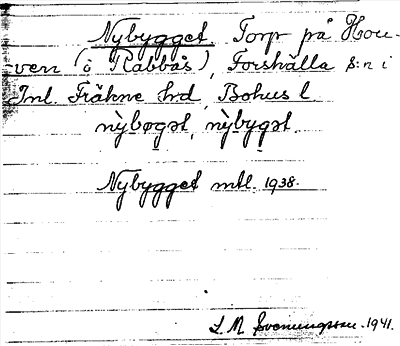 Nybygget. Torp på Hou-
ven (å Rabbås), Forshälla s:n i
Inl. Fräkne hrd, Bohus l.
nỳbøgət, nỳbygət.
Nybygget mtl. 1938.
S. M. Svenungsson. 1941.